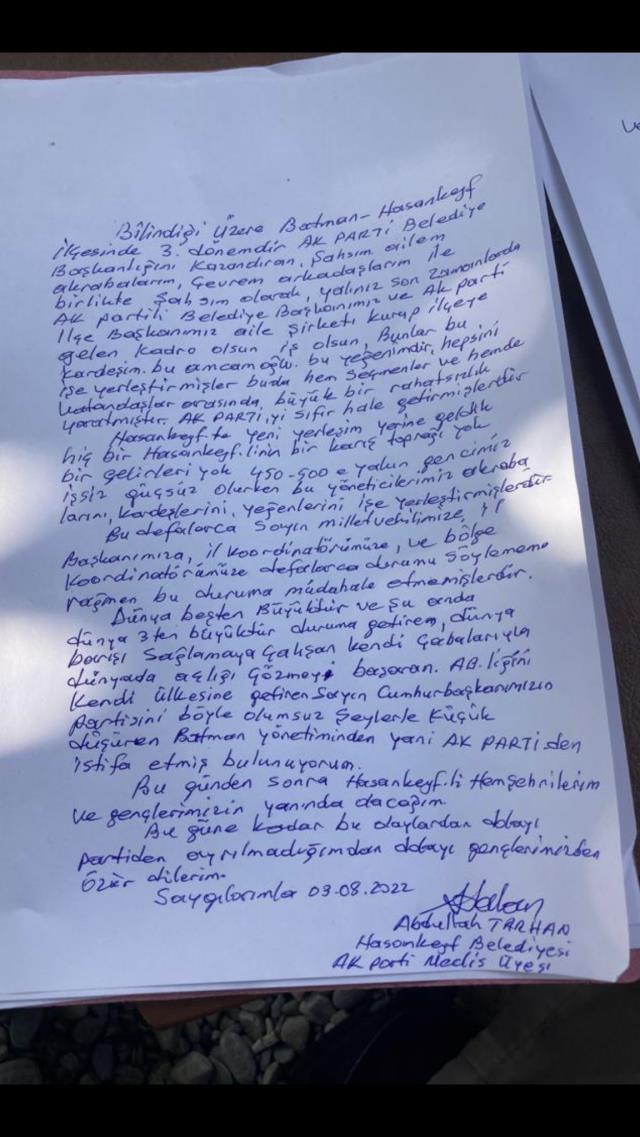 Bilindiği Üzere Batman-Hasankeyf
İlçesinde 3. dönemdir AK PARTİ Belediye
Başkanlığını Kazandıran, Şahsım ailem
akrabalarım, Çevrem arkadaşlarım ile
birlikte Şahsım olarak, yalınız son zamanlarda
AK partili Belediye Başkanımız ve AK parti
İlçe Başkanımız aile Şirketi kurup ilçeye
gelen kadro olsun iş olsun, Bunlar bu
kardeşim. bu amcamoğlu. bu yeğenimdir. hepsini
işe yerleştirmişler buda hem Seçmenler ve hemde
Vatandaşlar arasında, büyük bir rahatsızlık
yaratmıştır. AK PARTİ,yi Sıfır hale getirmişlerdir
Hasankeyf.te yeni yerleşim yerine geldik
hiç bir Hasankeyf.linin bir karış toprağı yok
bir gelirleri yok 450-500 e yakın gencimiz
işsiz güçsüz olurken bu yöneticilerimiz akraba
larını, kardeşlerini, yeğenlerini işe yerleştirmişlerdir.
Bu defalarca Sayın milletvekilimize, İl
Başkanımıza, il koordinatörümüze, ve bölge
Koordinatörümüze defalarca durumu Söylememe
rağmen bu duruma müdahale etmemişlerdir.
Dünya beşten Büyüktür ve şu anda
dünya 3ten büyüktür duruma getiren, dünya
barışı Sağlamaya Çalışan kendi Çabalarıyla
dünyada açlığı Çözmeyi başaran. AB.liğini
kendi ülkesine getiren Sayın Cumhurbaşkanımızın
partisini böyle olumsuz Şeylerle küçük
düşüren Batman yönetiminden yani AK PARTİ'den
istifa etmiş bulunuyorum.
Bu günden sonra Hasankeyf.li Hemşehrilerim
ve gençlerimizin yanında olacağım.
Bu güne kadar bu olaylardan dolayı
partiden ayrılmadığımdan dolayı gençlerimizden
Özür dilerim.
Saygılarımla 03.08.2022
Abdullah TARHAN
Hasankeyf Belediyesi
AK parti Meclis Üyesi